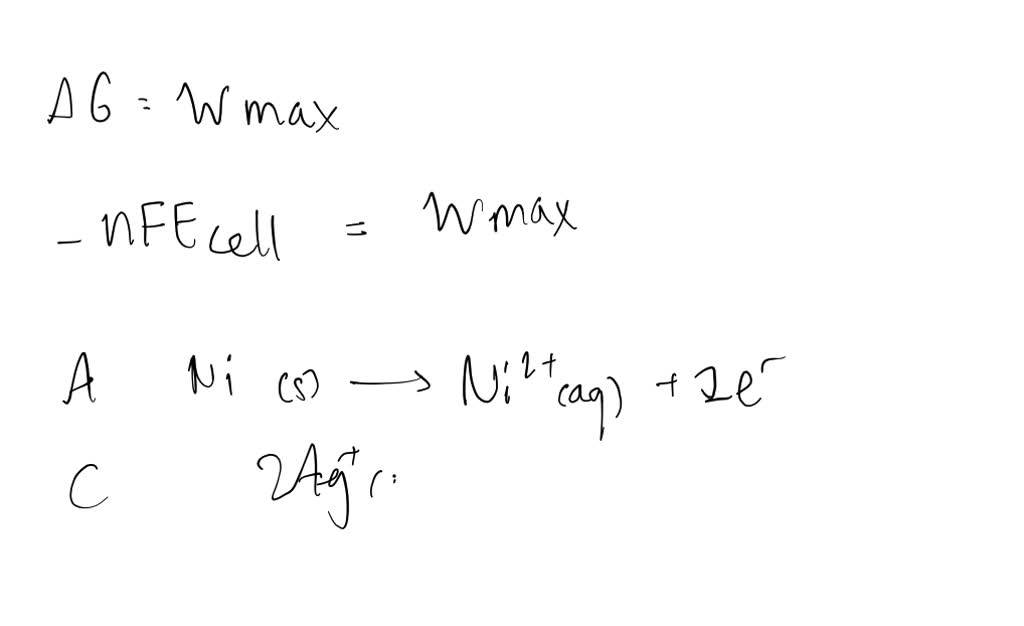 ΔG = Wmax
- nFEcell = Wmax
A Ni (s) ⟶ Ni²⁺(aq) + 2e⁻
C 2Ag⁺(